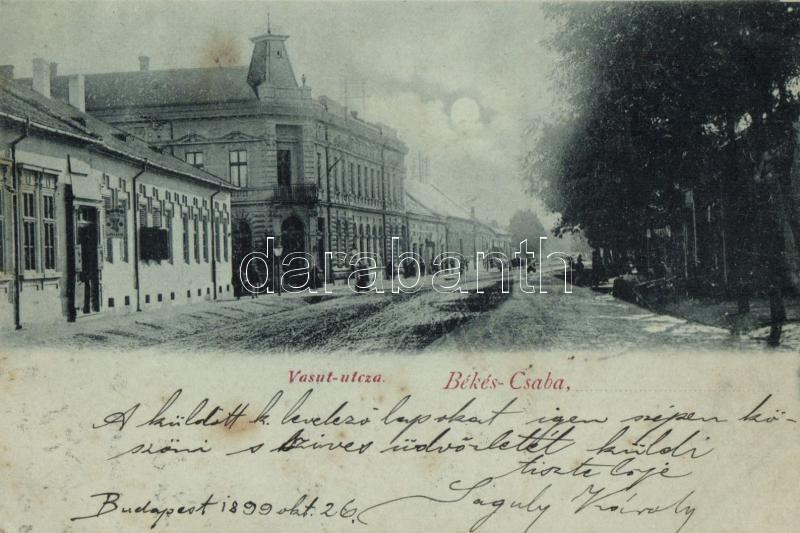 darabanth
Vasut-utcza.
Békés-Csaba,
A küldött k. levelező lapokat igen szépen kö-
szöni s szives üdvözletét küldi
tisztelője
Budapest 1899 okt. 26.
Saguly Károly